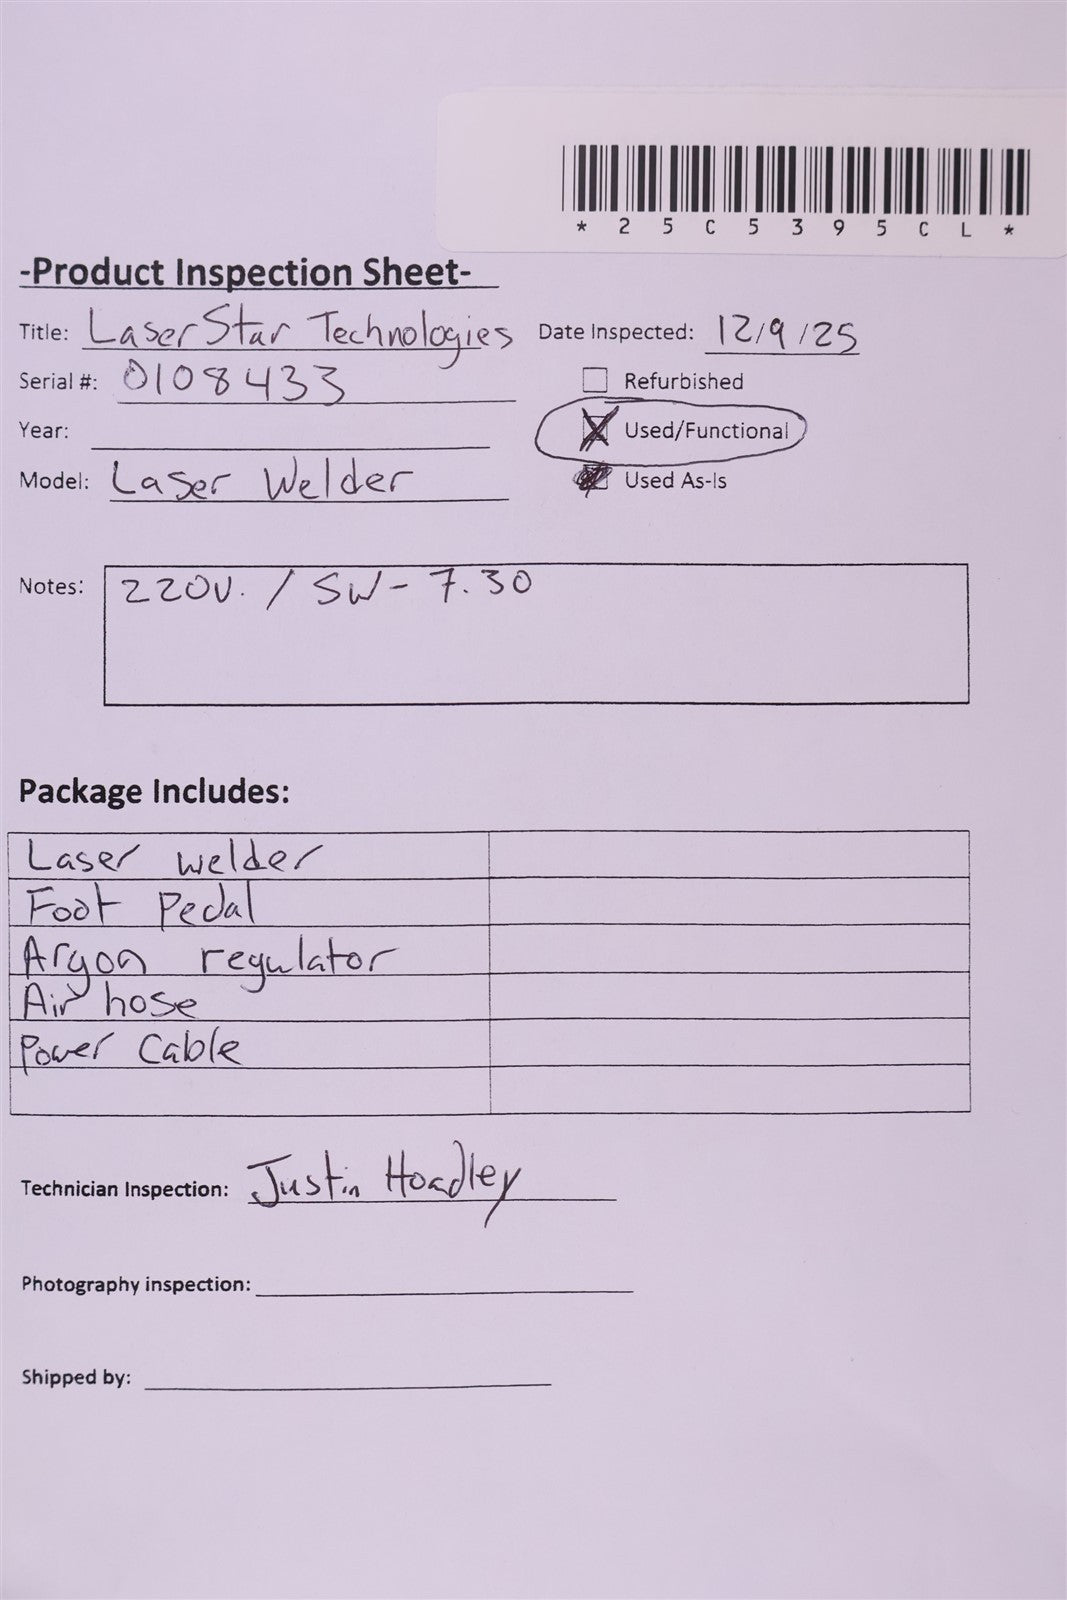 * 2 5 C 5 3 9 5 C L *
-Product Inspection Sheet-
Title: LaserStar Technologies Date Inspected: 12/9/25
Serial #: 0108433 Refurbished
Year: Used/Functional
Model: Laser Welder Used As-Is
Notes: 220V. / SW- 7.30
Package Includes:
Laser welder
Foot Pedal
Argon regulator
Air hose
Power Cable
Technician Inspection: Justin Hoadley
Photography inspection:
Shipped by: